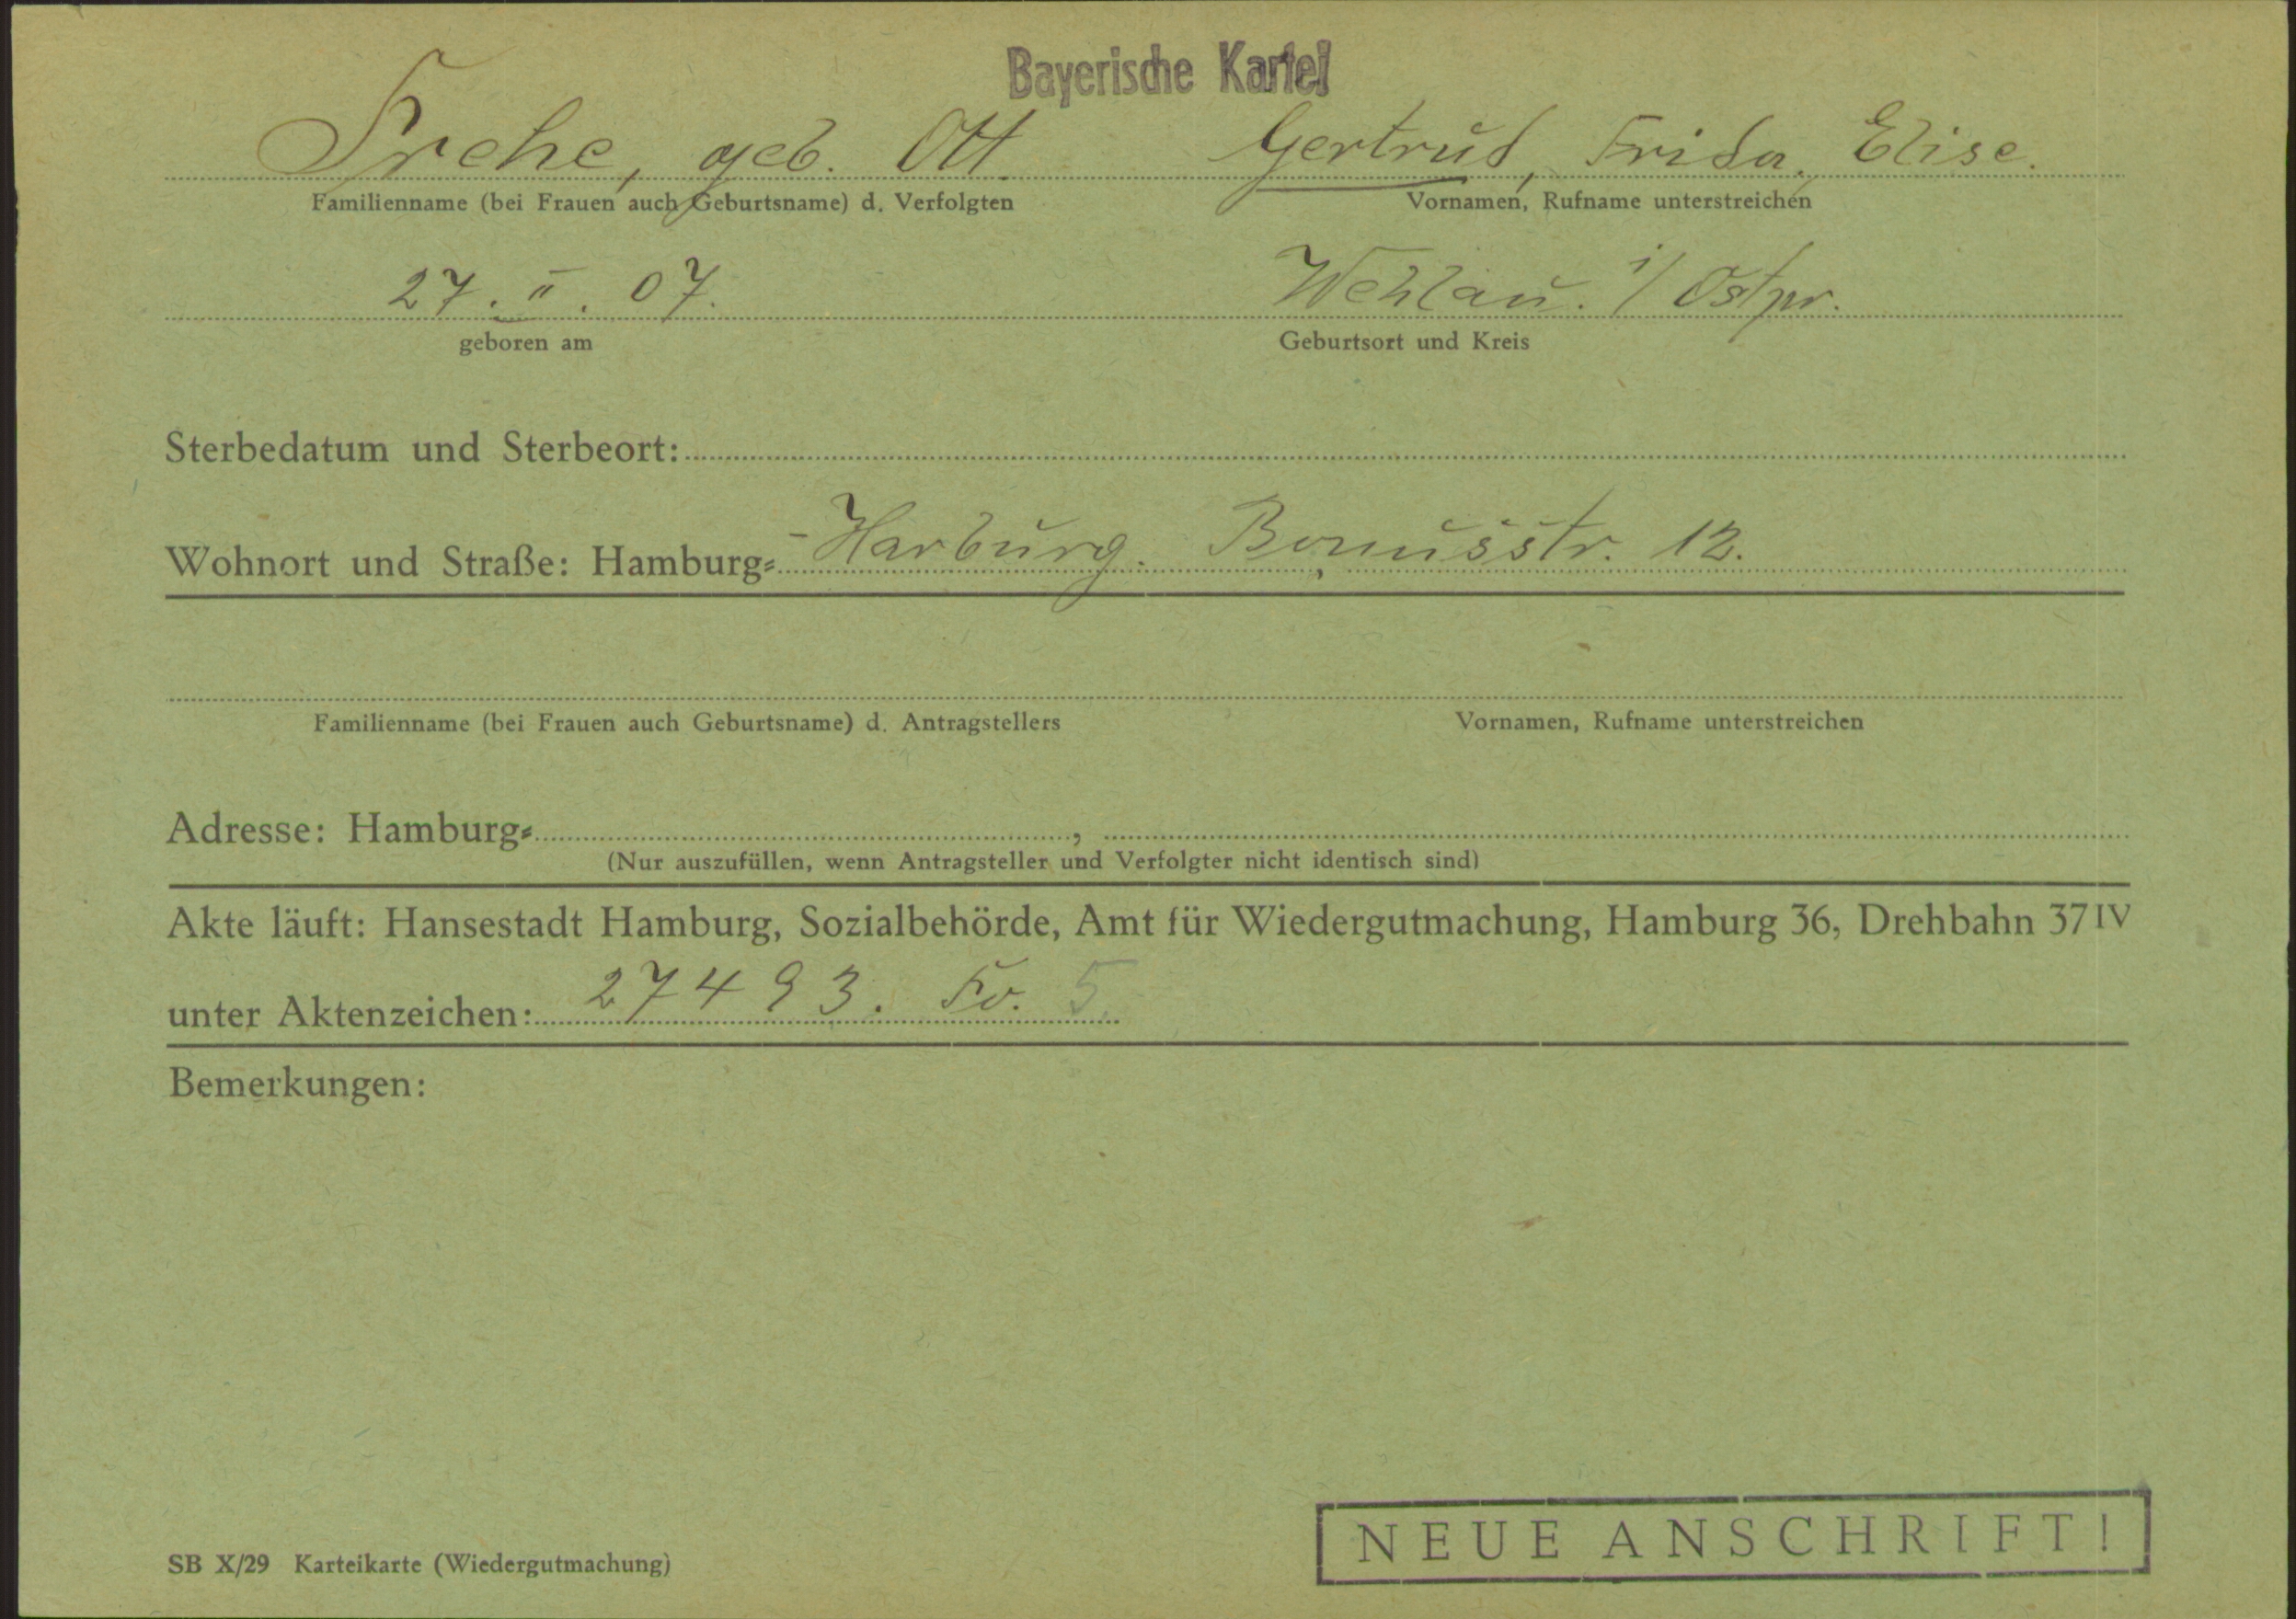 Bayerische Kartei
Frehe, geb. Ott. Gertrud, Frida, Elise.
Familienname (bei Frauen auch Geburtsname) d. Verfolgten Vornamen, Rufname unterstreichen
27. II. 07. Wehlau. i/Ostpr.
geboren am Geburtsort und Kreis
Sterbedatum und Sterbeort:
Wohnort und Straße: Hamburg- -Harburg. 12.
Familienname (bei Frauen auch Geburtsname) d. Antragstellers Vornamen, Rufname unterstreichen
Adresse: Hamburg- ,
(Nur auszufüllen, wenn Antragsteller und Verfolgter nicht identisch sind)
Akte läuft: Hansestadt Hamburg, Sozialbehörde, Amt für Wiedergutmachung, Hamburg 36, Drehbahn 37 IV
unter Aktenzeichen: 27493. 5.
Bemerkungen:
NEUE ANSCHRIFT!
SB X/29 Karteikarte (Wiedergutmachung)